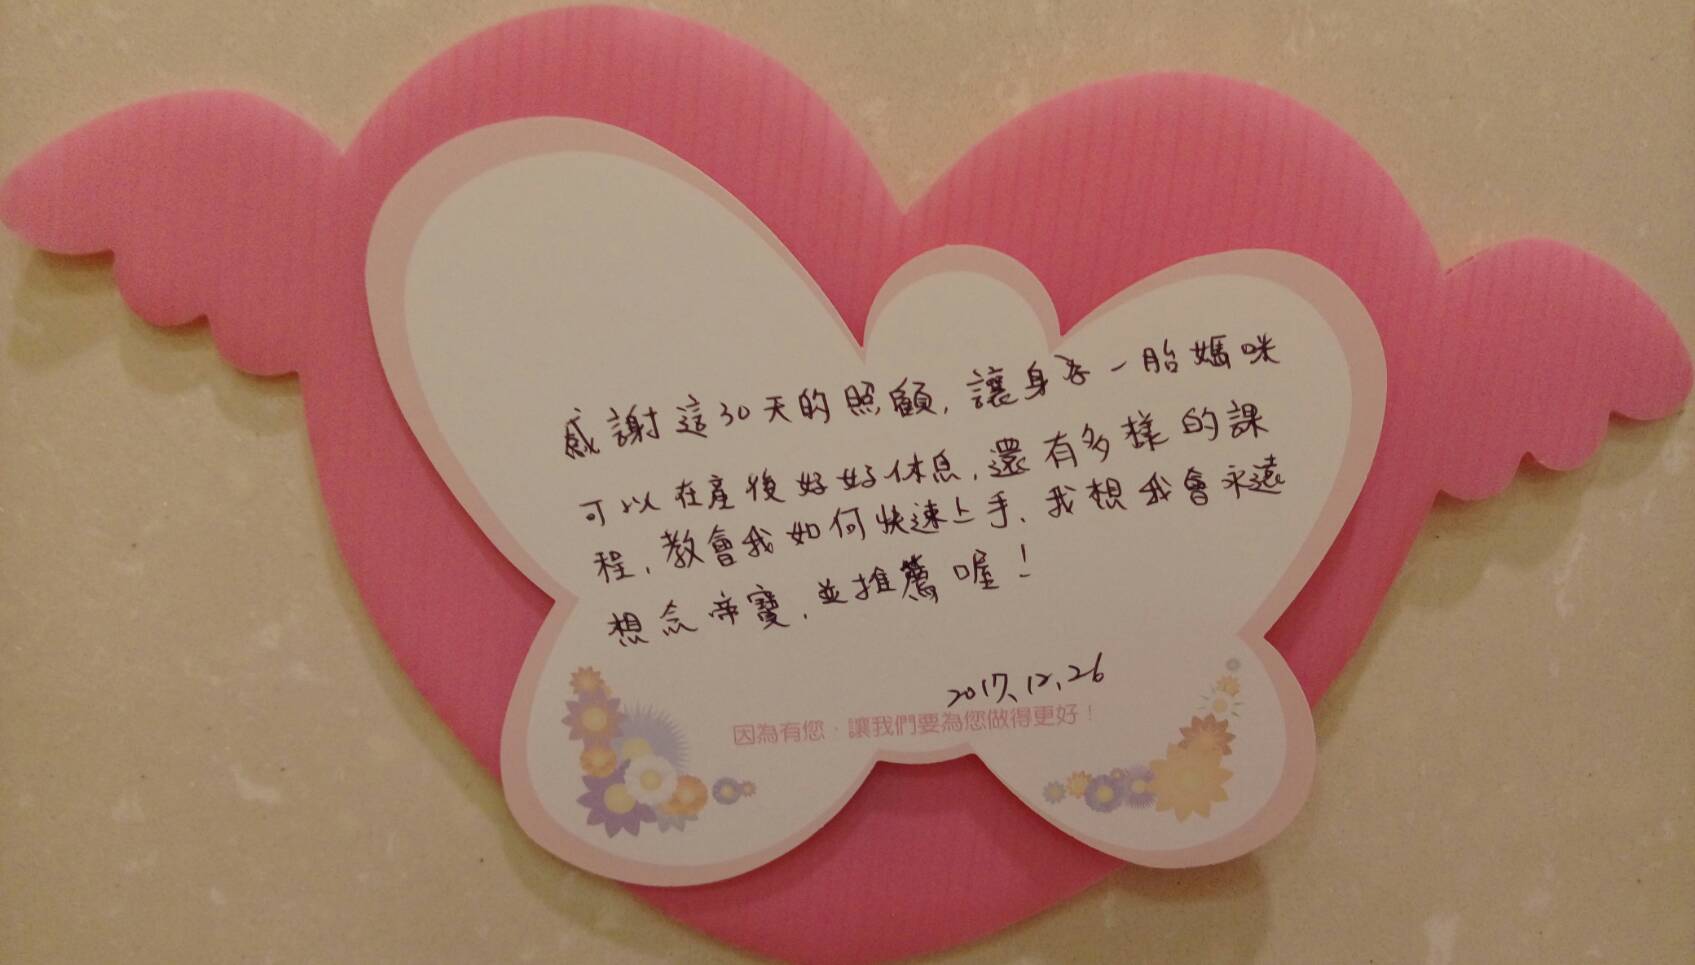 感謝這30天的照顧，讓身為一胎媽咪
可以在產後好好休息，還有多樣的課
程，教會我如何快速上手、我想我會永遠
想念帝寶，並推薦喔！
2017.12.26
因為有您，讓我們要為您做得更好！